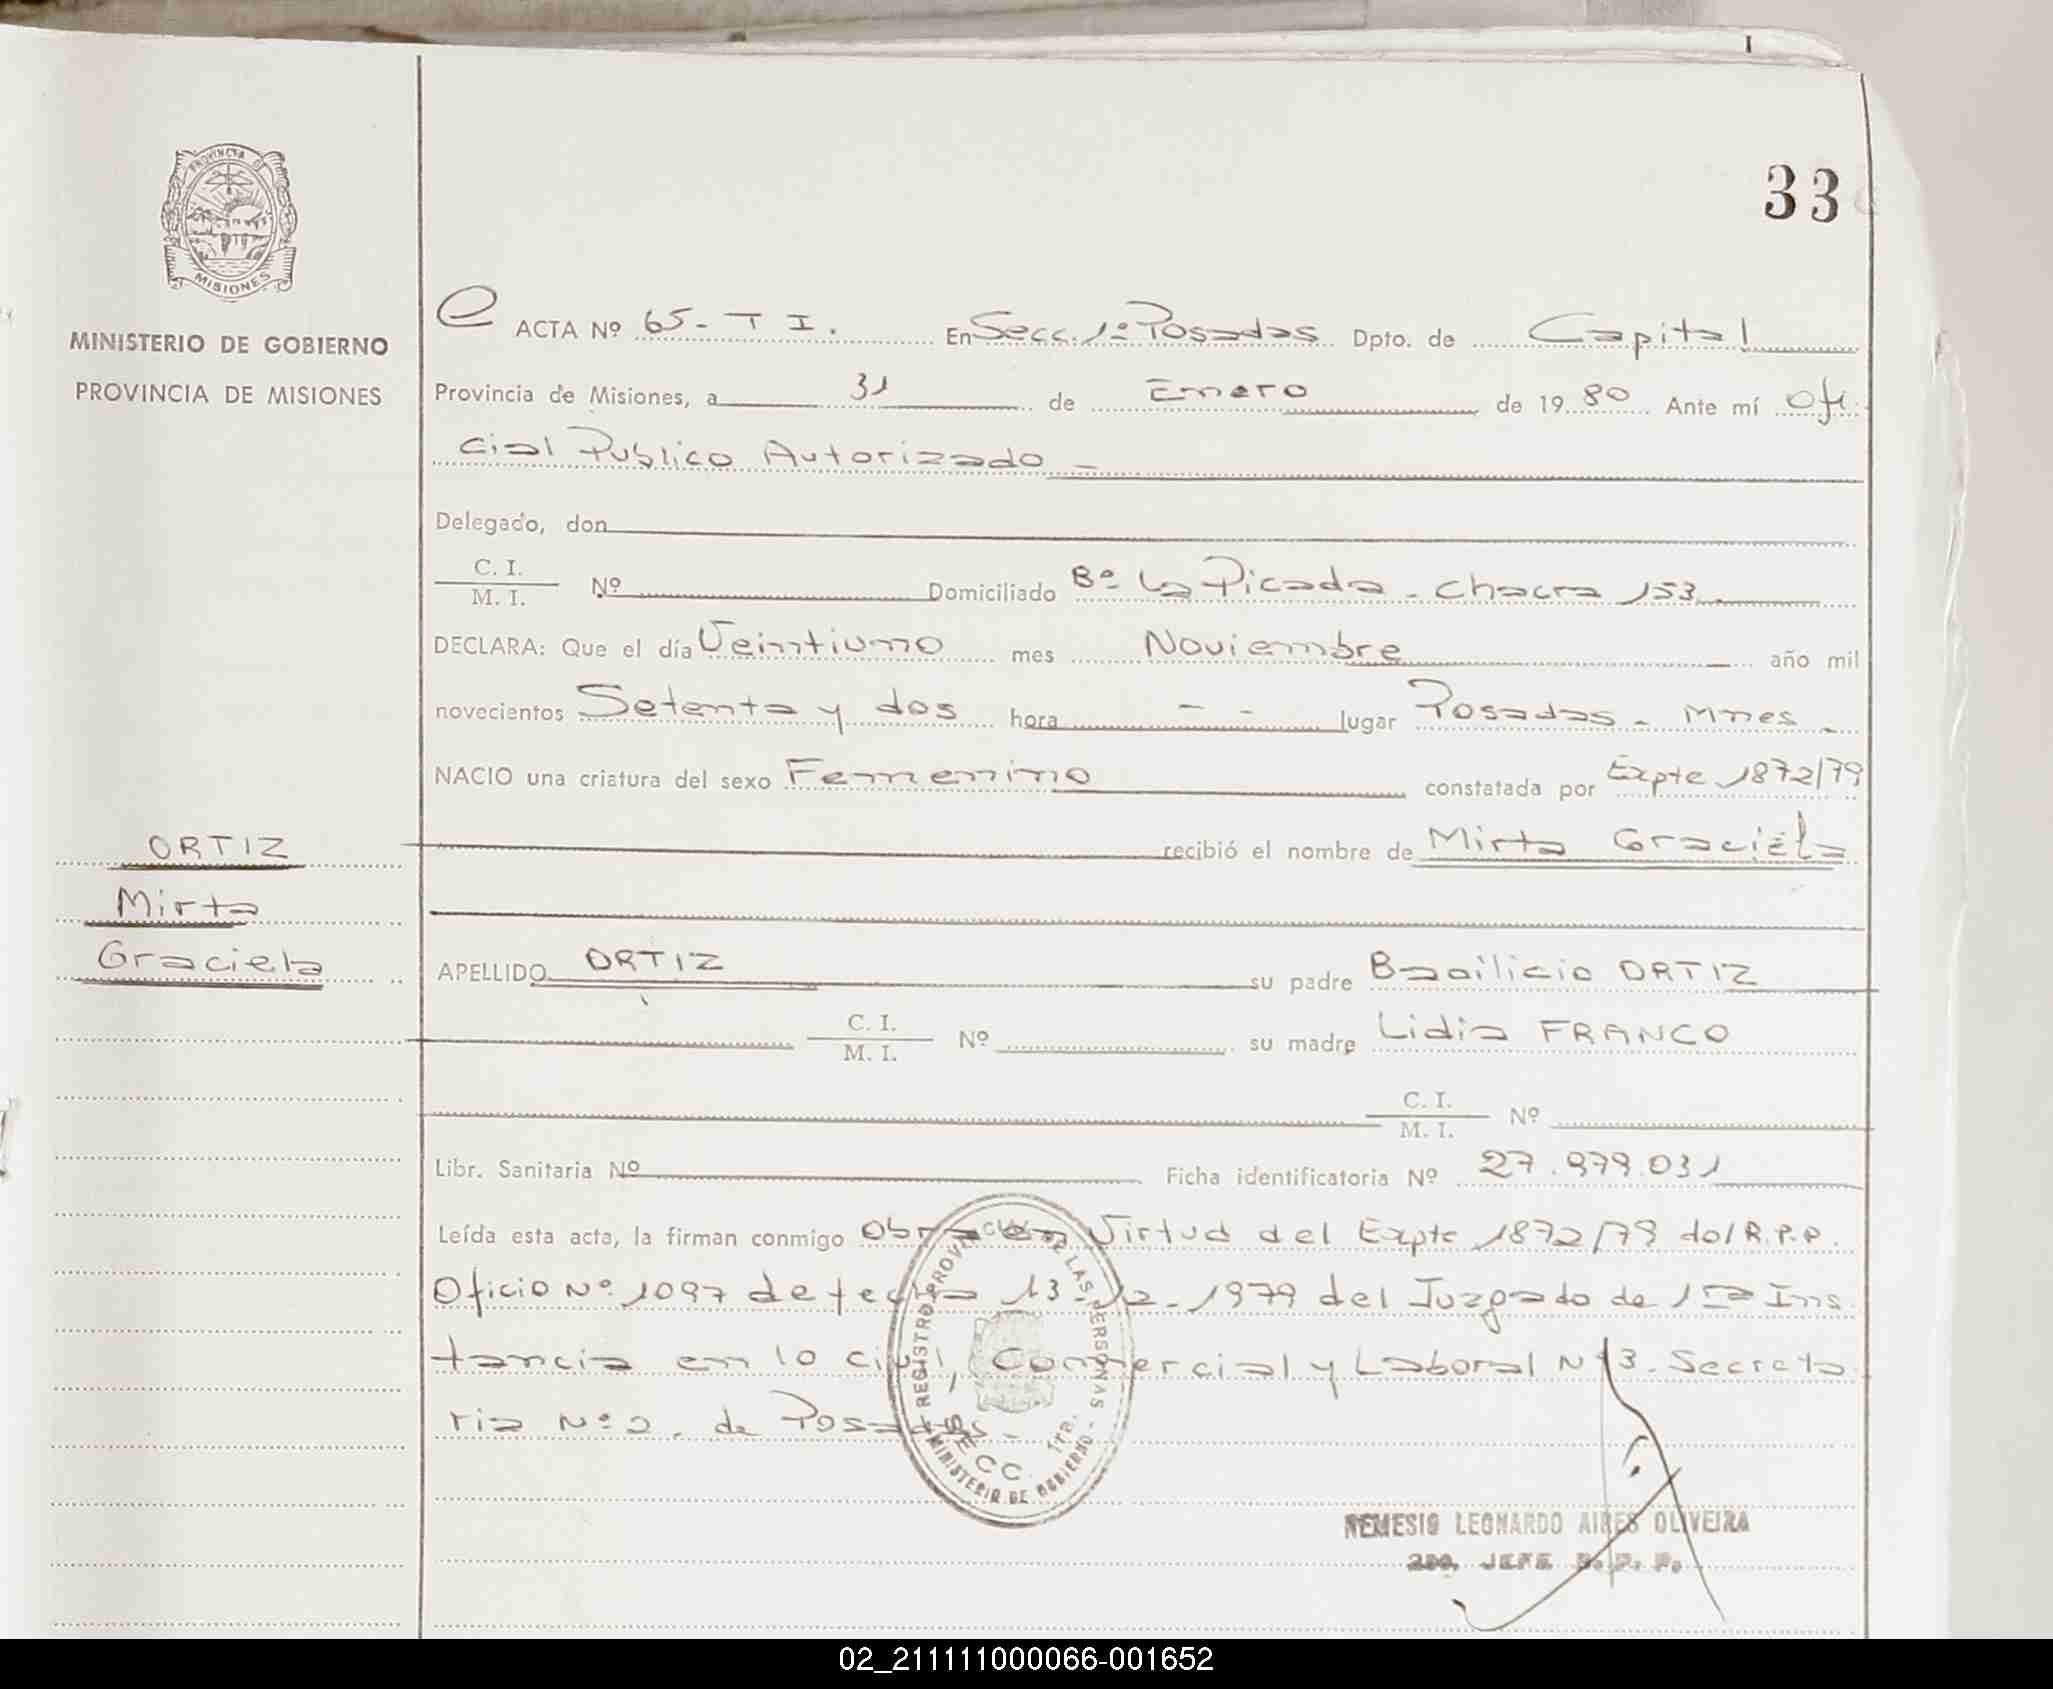 33
PROVINCIA DE
MISIONES
MINISTERIO DE GOBIERNO
PROVINCIA DE MISIONES
ACTA Nº 65 - T I. En Secc. 1º Posadas Dpto. de Capital
Provincia de Misiones, a 31 de Enero de 1980 Ante mí Ofi
cial Publico Autorizado -
Delegado, don
C. I.
M. I. Nº Domiciliado Bº La Picada - Chacra 153
DECLARA: Que el día Veintiuno mes Noviembre año mil
novecientos Setenta y dos hora - - lugar Posadas - Mnes -
NACIO una criatura del sexo Femenino constatada por Expte 1872/79
recibió el nombre de Mirta Graciela
ORTIZ
Mirta
Graciela
APELLIDO ORTIZ su padre Basilicio ORTIZ
C. I.
M. I. Nº su madre Lidia FRANCO
C. I.
M. I. Nº
Libr. Sanitaria Nº Ficha identificatoria Nº 27.979.031
Leída esta acta, la firman conmigo Obra en Virtud del Expte 1872/79 del R.P.P.
Oficio Nº 1097 de fecha 13-12-1979 del Juzgado de 1ra Ins
tancia en lo civil, Comercial y Laboral Nº 3. Secreta
ria Nº 2. de Posadas -
REGISTRO PROVINCIAL DE LAS PERSONAS
SECC. 1ra.
MINISTERIO DE GOBIERNO
NEMESIO LEONARDO AIRES OLIVEIRA
2do. JEFE R. P. P.
02_211111000066-001652